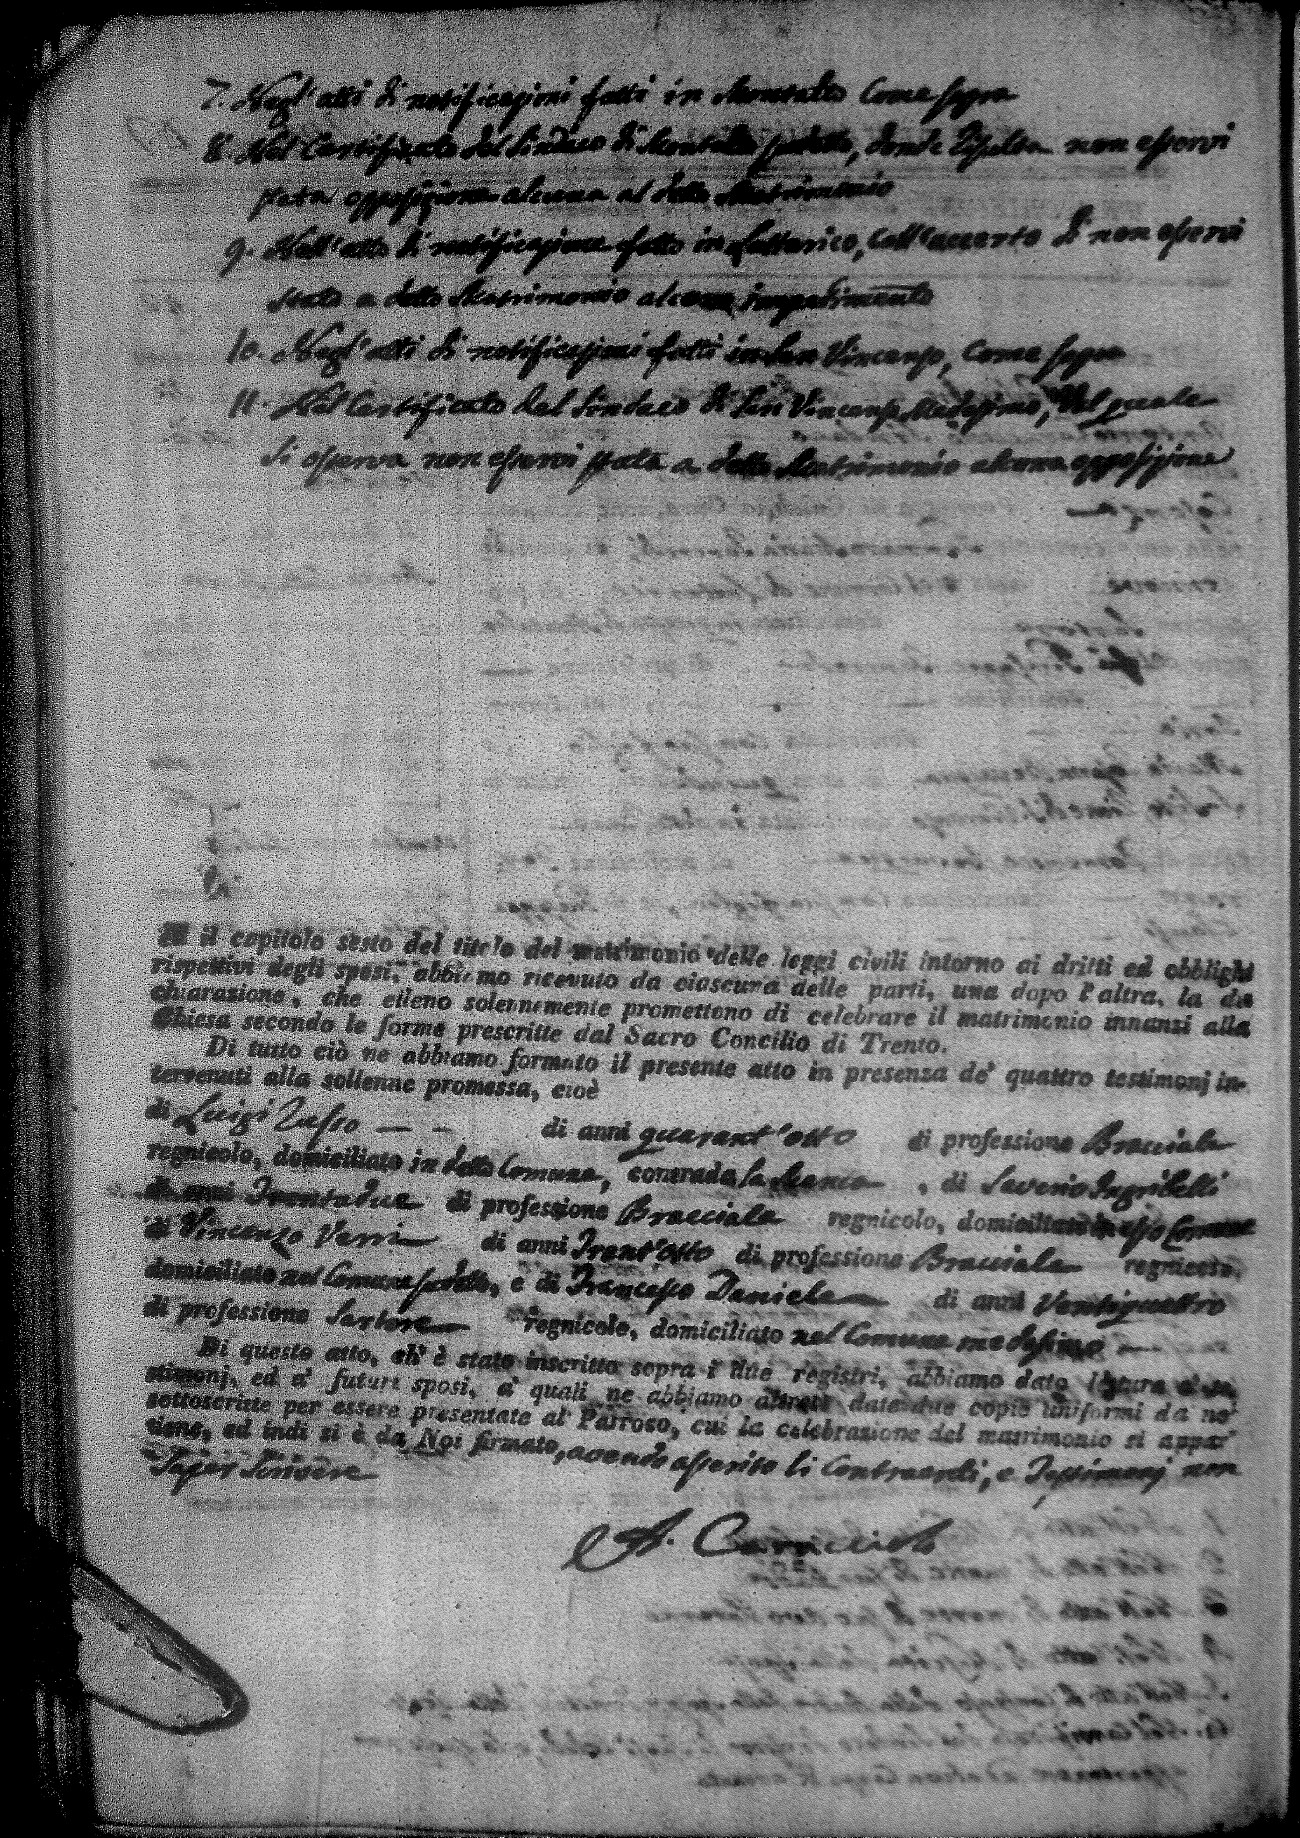 7. Negl'atti di notificazioni fatti in Montalto come sopra
8. Nel Certificato del Sindaco di Montalto, donde risulta non esservi
stata opposizione alcuna al detto Matrimonio
9. Nell'atto di notificazione fatto in Lattarico, coll'accerto di non esservi
stato a detto Matrimonio alcuno impedimento
10. Negl'atti di notificazioni fatti in San Vincenzo, come sopra
11. Nel Certificato del Sindaco di San Vincenzo Medesimo, nel quale
si osserva non esservi stata a detto Matrimonio alcuna opposizione
il capitolo sesto del titolo del matrimonio delle leggi civili intorno ai dritti ed obblighi
rispettivi degli sposi, abbiamo ricevuto da ciascuna delle parti, una dopo l'altra, la di
chiarazione, che elleno solennemente promettono di celebrare il matrimonio innanzi alla
Chiesa secondo le forme prescritte dal Sacro Concilio di Trento.
Di tutto ciò ne abbiamo formato il presente atto in presenza de' quattro testimonj in-
tervenuti alla sollenne promessa, cioè
di Luigi Tasso — — di anni quarant'otto di professione Bracciale
regnicolo, domiciliato in detto Comune, contrada la Manca, di Saverio Ingribelli
di anni Trentadue di professione Bracciale regnicolo, domiciliato in esso Comune
di Vincenzo Verri di anni Trent'otto di professione Bracciale regnicolo,
domiciliato nel Comune sudetto, e di Francesco Daniele di anni Ventiquattro
di professione Sartore regnicolo, domiciliato nel Comune medesimo —
Di questo atto, ch' è stato inscritto sopra i due registri, abbiamo dato lettura a' te-
stimonj, ed a' futuri sposi, a' quali ne abbiamo altresì date due copie uniformi da noi
sottoscritte per essere presentate al Parroco, cui la celebrazione del matrimonio si appar
tiene, ed indi si è da Noi firmato, avendo asserito li Contraenti, e Testimonj non
saper scrivere